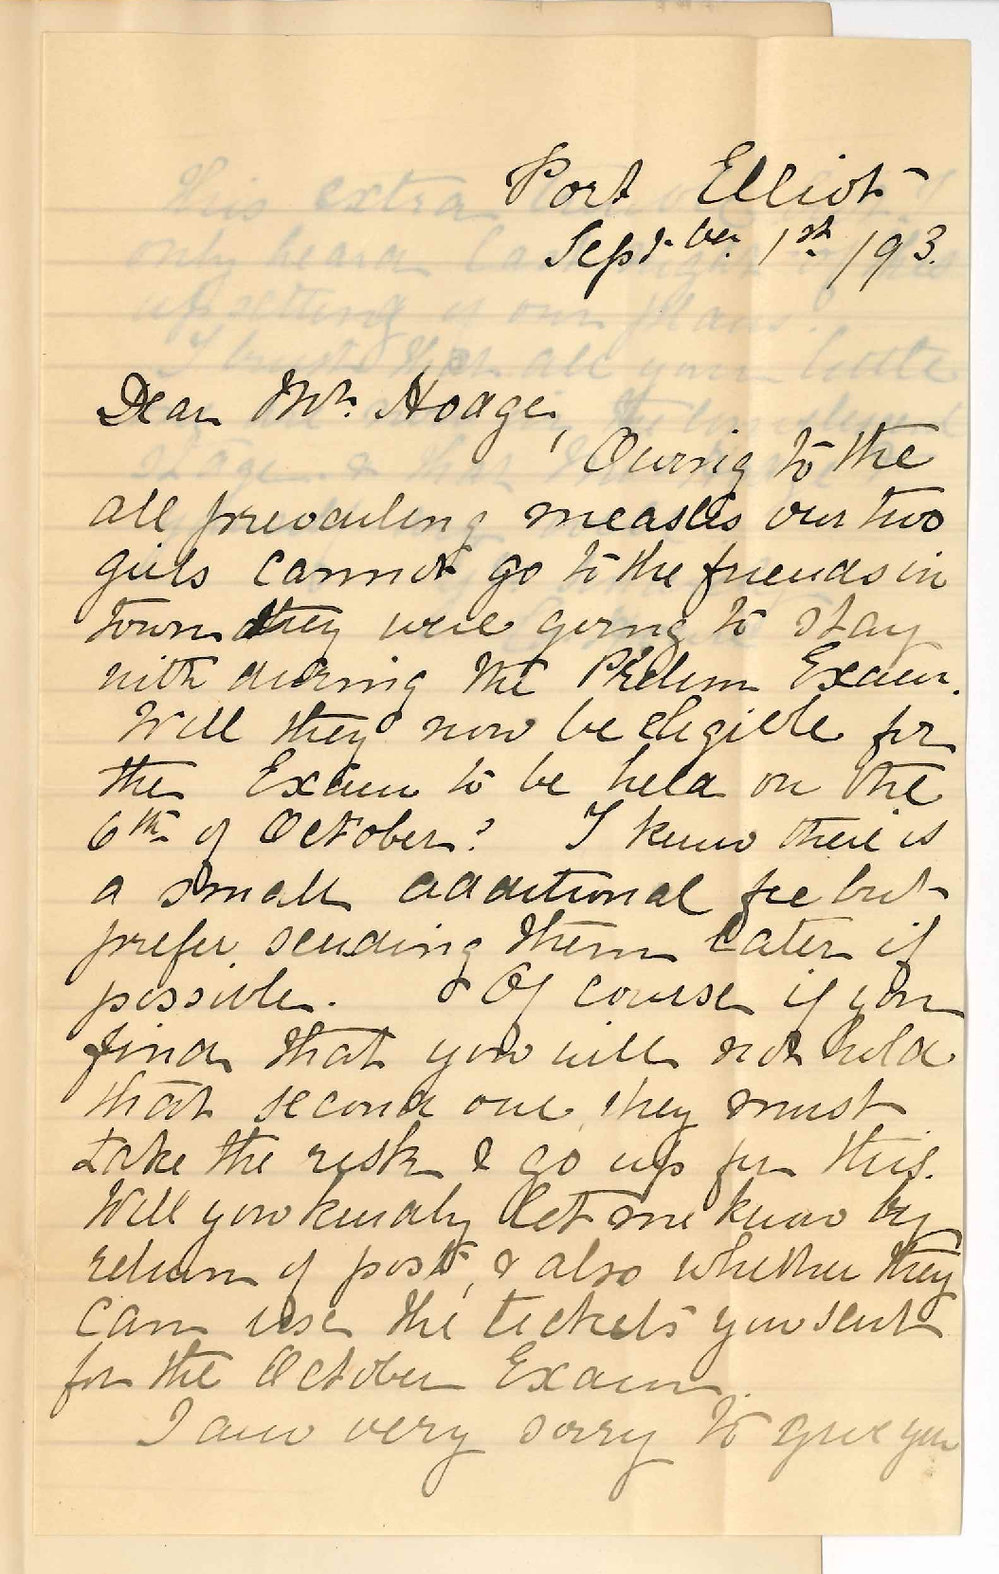 Port Elliot
Septber. 1st /93.
Dear Mr. Hodge,
Owing to the
all prevailing measles our two
girls cannot go to the friends in
town they were going to stay
with during the Prelim Exam.
Will they now be eligible for
the Exam to be held on the
6th of October? I know there is
a small additional fee but
prefer sending them later if
possible. & Of course if you
find that you will not hold
that second one, they must
take the risk & go up for this.
Will you kindly let me know by
return of post, & also whether they
can use the tickets you sent
for the October Exam.
I am very sorry to give you